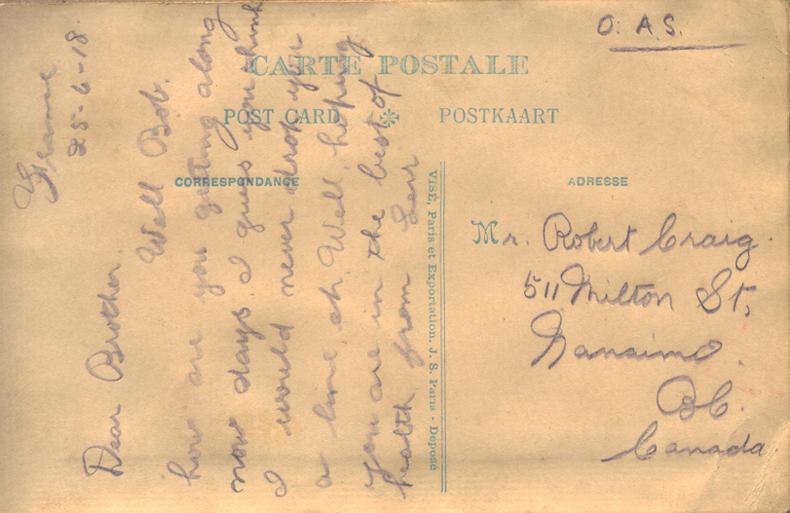 O. A. S.
CARTE POSTALE
POST CARD
POSTKAART
CORRESPONDANCE
ADRESSE
France
25-6-18
Dear Brother
Well Bob.
how are you getting along
now days. I guess you think
I would never drop you
a line eh. Well hoping
you are in the best of
health from
VISÉ, Paris et Exportation. J. S. Paris - Déposé
Mr. Robert Craig.
511 Milton St,
Nanaimo.
BC.
Canada